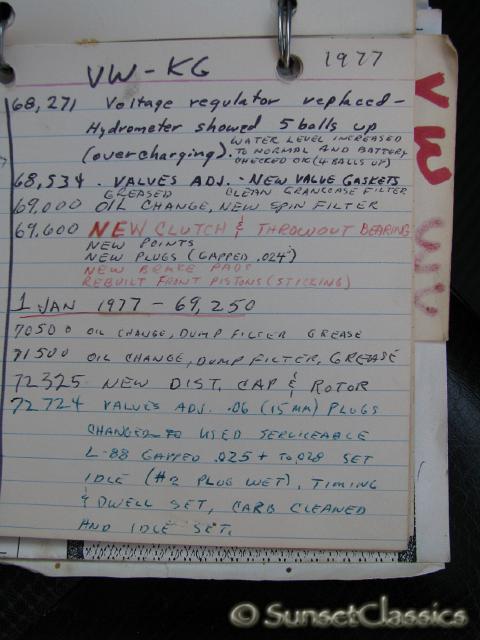 1977
VW-KG
68,271 Voltage regulator replaced-
Hydrometer showed 5 balls up
(overcharging). WATER LEVEL INCREASED
TO NORMAL AND BATTERY
CHECKED OK (4 BALLS UP)
68,534 . VALVES ADJ. - NEW VALVE GASKETS
GREASED CLEAN CRANKCASE FILTER
69,000 OIL CHANGE, NEW SPIN FILTER
69,600 NEW CLUTCH & THROWOUT BEARING
NEW POINTS
NEW PLUGS (GAPPED .024")
NEW BRAKE PADS
REBUILT FRONT PISTONS (STICKING)
1 JAN 1977 - 69,250
70500 OIL CHANGE, DUMP FILTER GREASE
71500 OIL CHANGE, DUMP FILTER, GREASE
72325 NEW DIST, CAP & ROTOR
72724 VALVES ADJ. .06 (15MM) PLUGS
CHANGED TO USED SERVICEABLE
L-88 GAPPED .025+ TO .028 SET
IDLE (#2 PLUG WET), TIMING
& DWELL SET, CARB CLEANED
AND IDLE SET.
VW
VW
© SunsetClassics